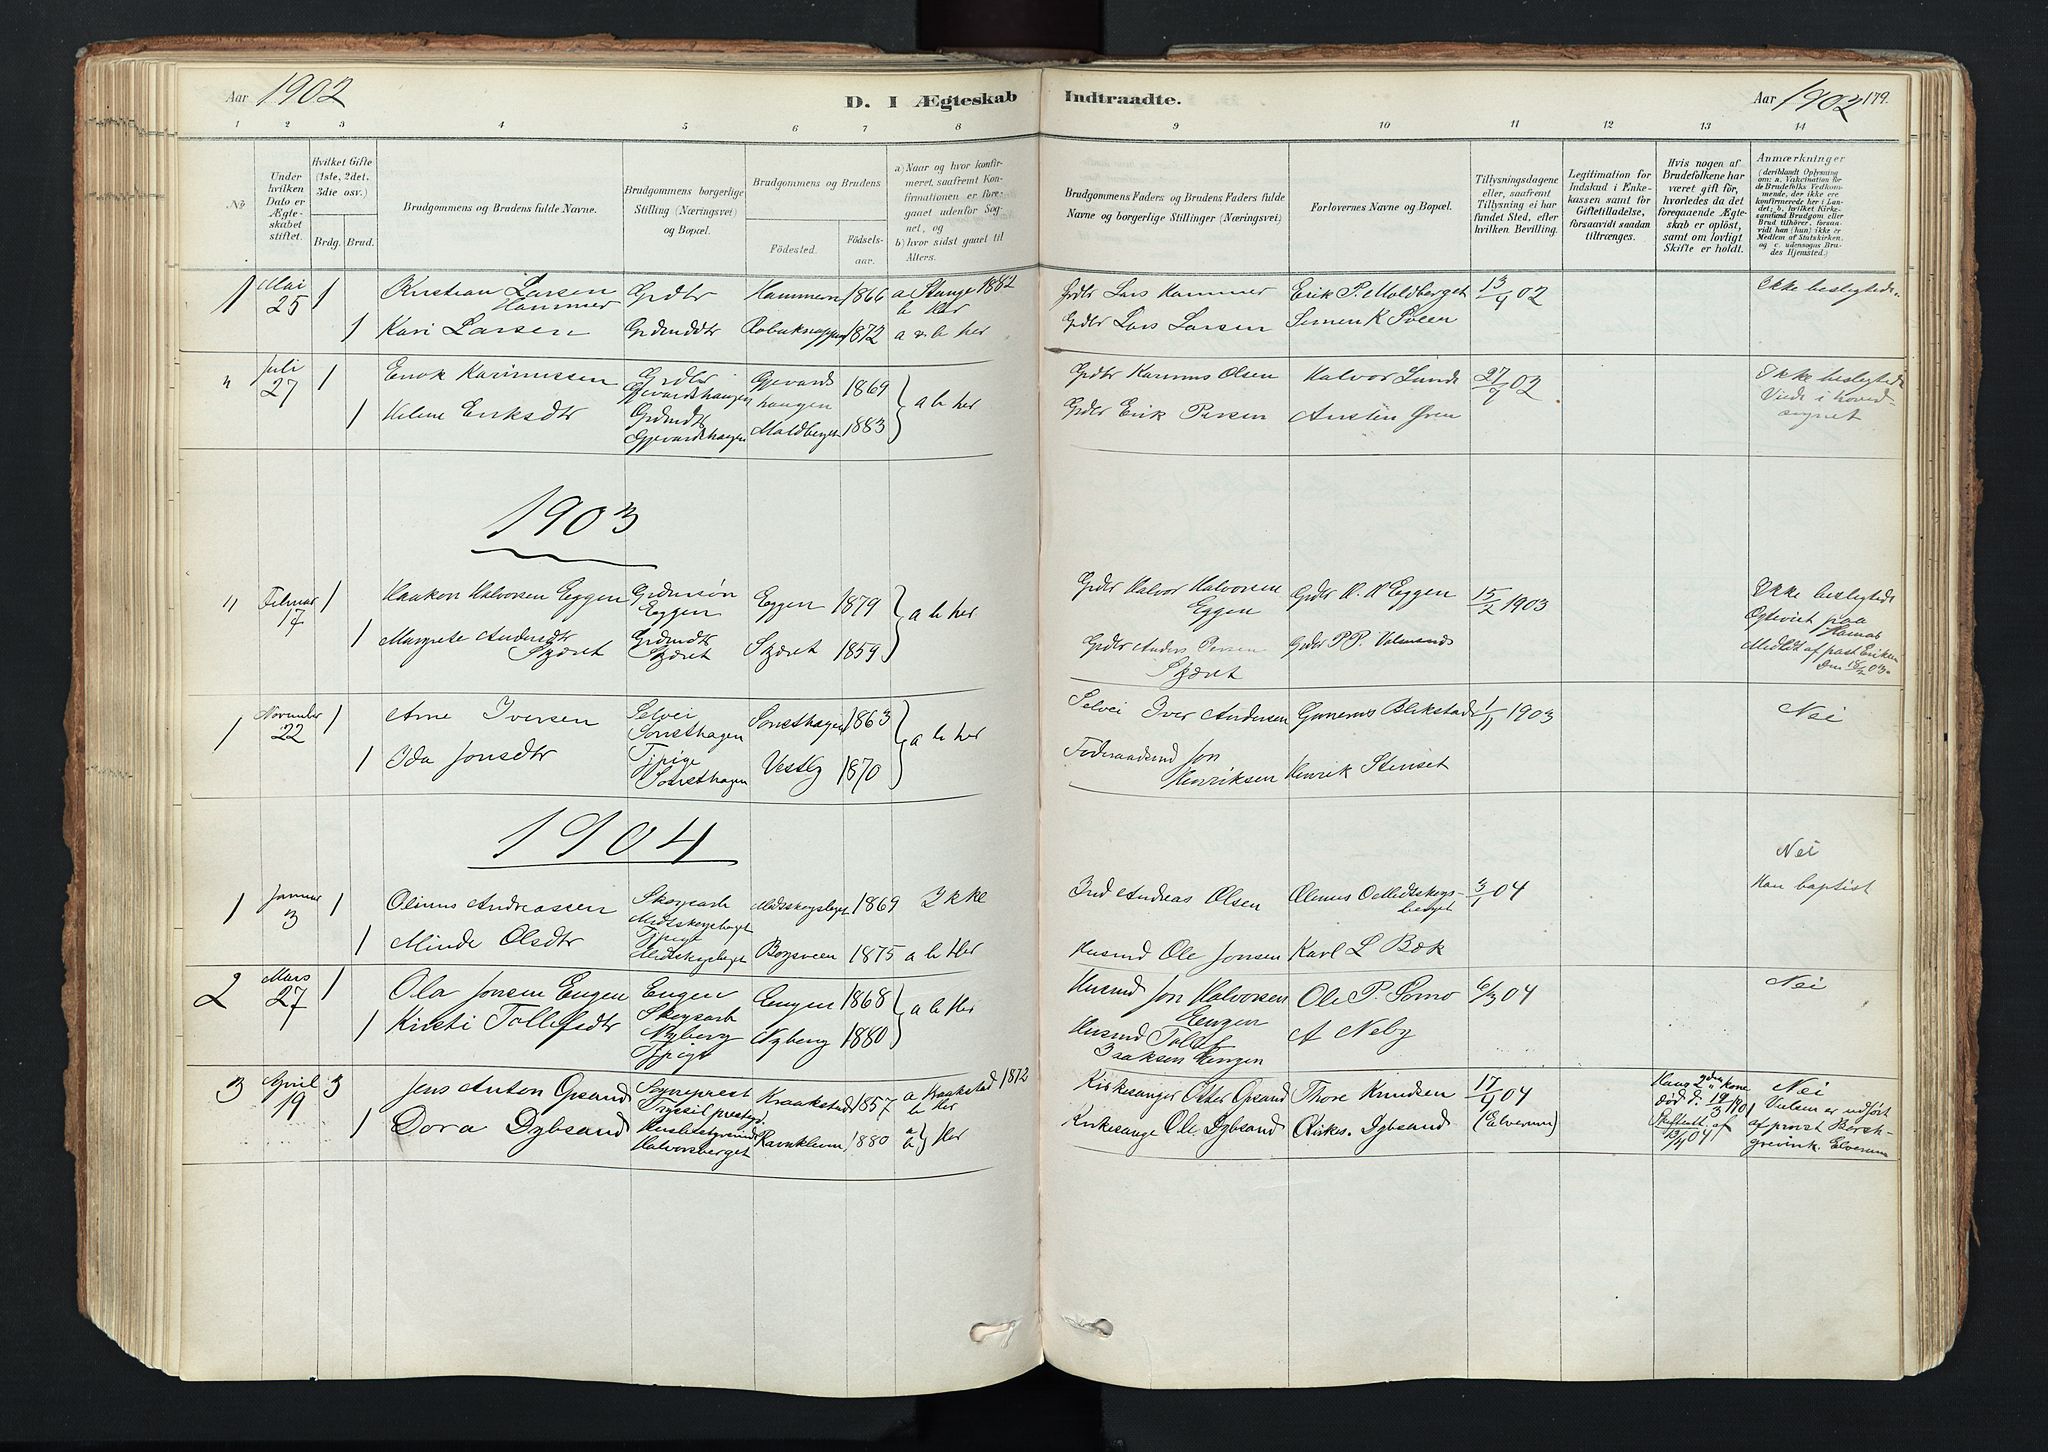 Aar 1902
D. I Ægteskab
Indtraadte.
Aar 1902 179.
1 2 3 4 5 6 7 8 9 10 11 12 13 14
No.
Under hvilken Dato er Ægteskabet stiftet.
Hvilket Gifte (1ste, 2det, 3die osv.)
Brdg. Brud.
Brudgommens og Brudens fulde Navne.
Brudgommens borgerlige Stilling (Næringsvei) og Bopæl.
Brudgommens og Brudens
Fødested.
Fødselsaar.
a) Naar og hvor konfirmeret, saafremt Konfirmationen er foregaaet udenfor Sognet, og
b) hvor sidst gaaet til Alters.
Brudgommens Faders og Brudens Faders fulde Navne og borgerlige Stillinger (Næringsvei)
Forlovernes Navne og Bopæl.
Tillysningsdagene eller, saafremt Tillysning ei har fundet Sted, efter hvilken Bevilling.
Legitimation for Indskud i Enkekassen samt for Giftetilladelse, forsaavidt saadan tiltrænges.
Hvis nogen af Brudefolkene har været gift før, hvorledes da det foregaaende Ægteskab er opløst, samt om lovligt Skifte er holdt.
Anmærkninger
(deriblandt Oplysning om: a. Vakcination for de Brudefolks Vedkommende, der ikke ere konfirmerede her i Landet; b. hvilket Kirkesamfund Brudgom eller Brud tilhører, forsaavidt han (hun) ikke er Medlem af Statskirken, og c. udensogns Brudes Hjemsted.)
1 Mai 25 1 Kristian Larsen Hammer Grdbr Hammeren 1866 a Stange 1882 b Her Grdbr Lars Hammer Erik P. Moldberget 13/4 02 Ikke beslegtede
1 Kari Larsen Grdmdtr 1872 a & b her Grdbr Lars Larsen Simen K Sveen
Juli 27 1 Enok Karinussen Grdbr Gjevardshaugen Gjevardshaugen 1869 a b her Grdbr Karinus Olsen Halvor Lunde 27/7 02 Ikke beslegtede Viede i hovedsognet
1 Helene Eriksdtr Grdmdtr Gjevardshaugen Moldberget 1883 Grdbr Erik Persen Austin Øren
1903
Februar 17 1 Haakon Halvorsen Eggen Grdmsøn Eggen Eggen 1879 a b her Grdbr Halvor Halvorsen Eggen Grdbr H. H Eggen 15/2 1903 Ikke beslegtede
1 Margrete Andersdtr Skjæret Grdmdtr Skjæret Skjæret 1859 Grdbr Anders Persen Skjæret Grdbr P.P.
1 November 22 1 Arne Iversen Selvei Sonsthagen Sonsthagen 1863 a b her Selvei Iver Andersen Gunerus Blikstad 1/11 1903 Nei
1 Ida Jonsdtr Tjpige Sonsthagen Vestby 1870 Føderaadsmd Jon Henriksen Henrik Stenset
1904
1 Januar 3 1 Olinus Andreassen Skogarb Midtskogsberget 1869 Ikke Ind Andreas Olsen Olenus O Midtskogsberget 3/1 04 Nei Han baptist
1 Minda Olsdtr Tjpige Midtskogsberget Bogsveen 1875 a b Her Husmd Ole Jonsen Karl L Bæk
2 Mars 27 1 Ola Jonsen Engen Engen Skogsarb Engen 1868 a b Her Husmd Jon Halvorsen Engen Ole P. Somo 6/3 04 Nei
1 Kristi Tollefsdtr Nyberg Tjpige Nyberg 1880 Husmd Tollef Isaksen Hengen A Neby
3 April 19 3 Jens Anton Opsand Sogneprest Trysil prestegd Kraakstad 1857 a Kraakstad 1872 b Her Kirkesanger Otter Opsand Thore Knudsen 17/4 04 Hans 2den kone død d. 19/3 1901 Skifteatt. af 13/4 04 Nei Vielsen er udført af provst Borchgrevink. Elverum
1 Dora Dybsand Husbestyrerinde Halvorsberget Ravnkleven 1880 a b Her Kirkesange Ole Dybsand Kirkes. Dybsand (Elverum)